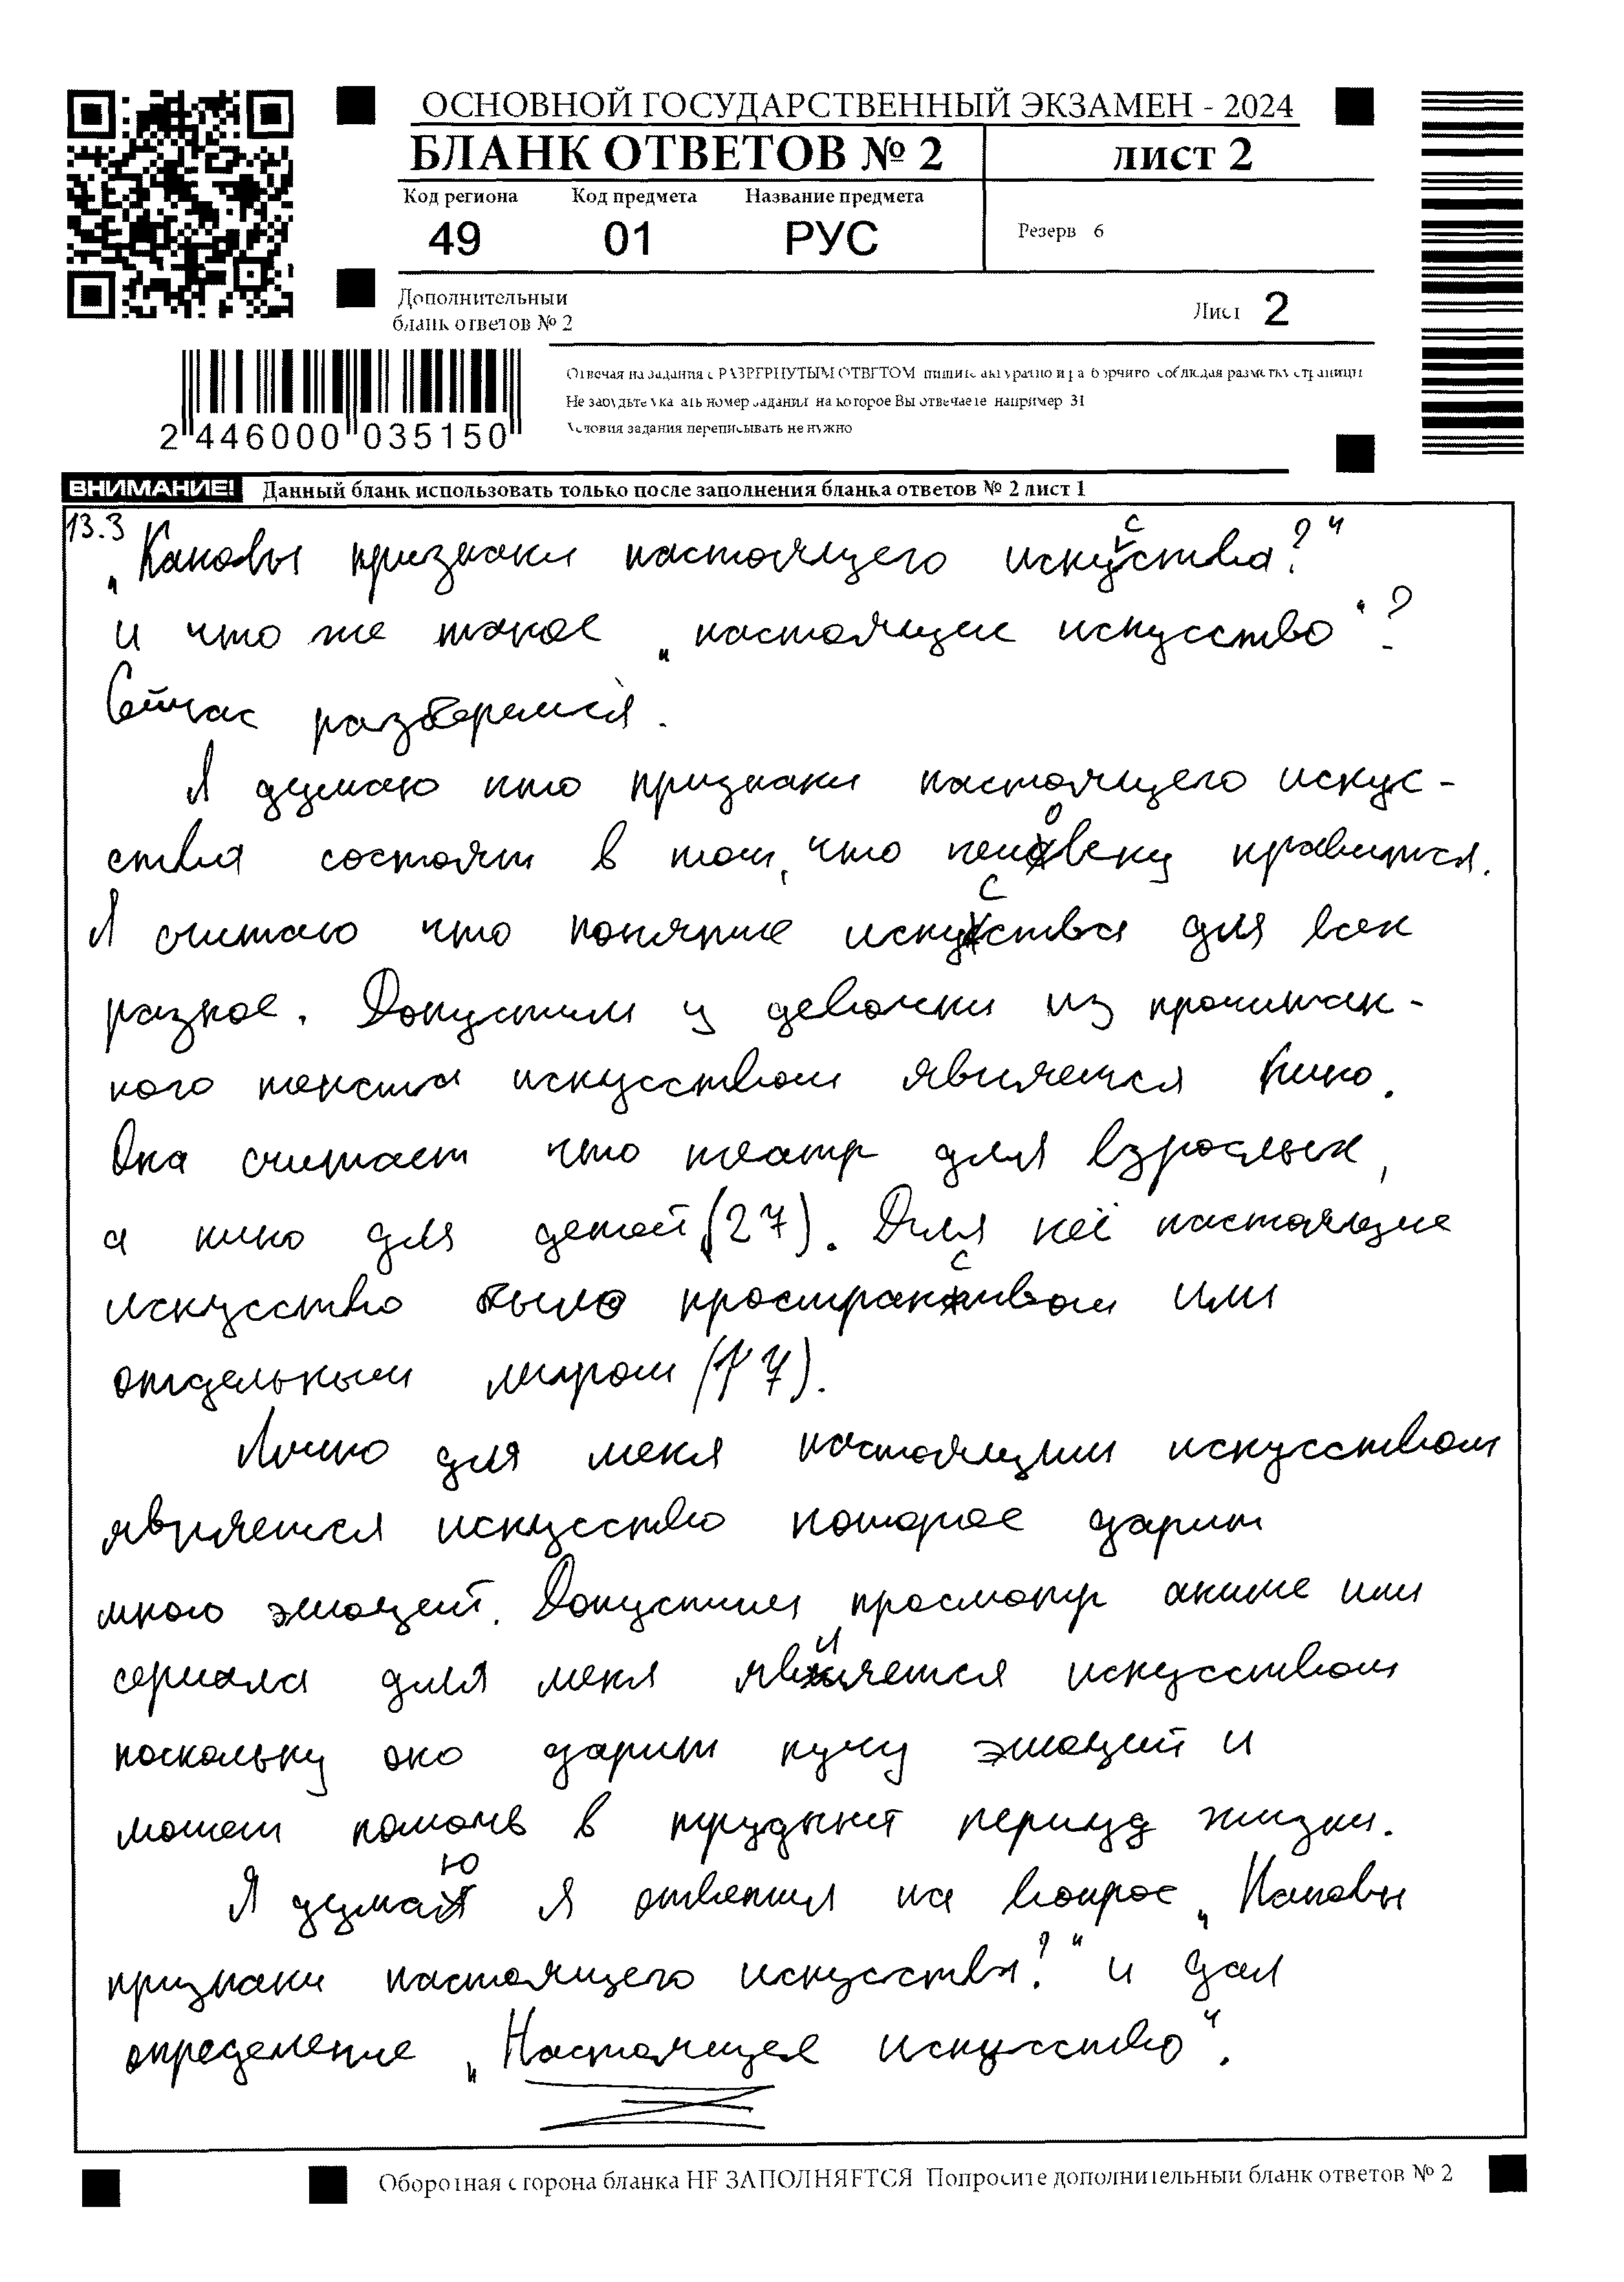 ОСНОВНОЙ ГОСУДАРСТВЕННЫЙ ЭКЗАМЕН - 2024
БЛАНК ОТВЕТОВ № 2
лист 2
Код региона Код предмета Название предмета
49 01 РУС
Резерв 6
Дополнительный
бланк ответов № 2
Лист 2
Отвечая на задания с РАЗВЕРНУТЫМ ОТВЕТОМ, пишите аккуратно и разборчиво, соблюдая разметку страницы
Не забудьте указать номер задания, на которое Вы отвечаете, например, 31
Условия задания переписывать не нужно
2 446000 035150
ВНИМАНИЕ! Данный бланк использовать только после заполнения бланка ответов № 2 лист 1
13.3
„Каковы признаки настоящего искусства?"
и что же такое „настоящие искусство"?
Сейчас разберемся.
Я думаю что признаки настоящего искус-
ства состоят в том, что человеку нравится.
Я считаю что понятие искусства для всех
разное. Допустим у девочки из прочитан-
ного текста искусством является кино.
Она считает что театр для взрослых,
а кино для детей (27). Для неё настоящие
искусство было пространством или
отдельным миром (17).
Лично для меня настоящим искусством
является искусство которое дарит
много эмоций. Допустим просмотр аниме или
сериала для меня является искусством
поскольку оно дарит кучу эмоций и
может помочь в трудный период жизни.
Я думаю я ответил на вопрос „Каковы
признаки настоящего искусства?" и дал
определение „Настоящее искусство".
Оборотная сторона бланка НЕ ЗАПОЛНЯЕТСЯ Попросите дополнительный бланк ответов № 2